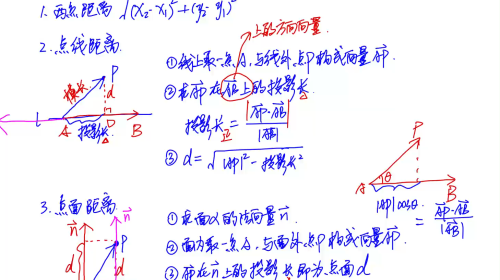 1. 两点距离 √(x₂-x₁)²+(y₂-y₁)²
上的方向向量
2. 点线距离
①线上取一点A,与线外一点P构成向量AP
②求AP在AB上的投影长
投影长 = |AP·AB| / |AB|
正
③ d = √|AP|² - 投影长²
P
模长
d
L
A
D
B
投影长
P
A
θ
B
|AP|cosθ
= AP·AB / |AB|
3. 点面距离
①求面α的法向量n
②面内取一点A,与面外一点P构成向量AP
③AP在n上的投影长即为点面d
n
n
P
d
d